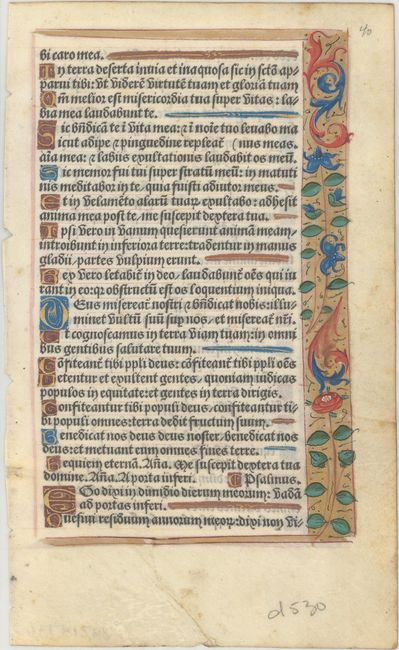 40
bi caro mea.
In terra deserta inuia et inaquosa sic in sctõ ap-
parui tibi: vt viderẽ virtutẽ tuam et gloriã tuam
Qm̃ melior est misericordia tua super vitas: la-
bia mea laudabunt te.
Sic bñdicã te ĩ vita mea: ⁊ ĩ noĩe tuo leuabo ma
Sicut adipe ⁊ pinguedine repleat̃ (nus meas.
aĩa mea: ⁊ labiis exultationis laudabit os meũ.
Sic memor fui tui super stratũ meũ: in matuti
nis meditabor in te, quia fuisti adiutor meus.
Et in velamẽto alarũ tuaꝝ exultabo: adhesit
anima mea post te, me suscepit dextera tua.
Ipsi vero in vanum quesierunt animã meam,
introibunt in inferiora terre: tradentur in manus
gladii, partes vulpium erunt.
Rex vero letabit̃ in deo, laudabunt̃ oẽs qui iu
rant in eo: qꝛ obstructũ est os loquentium iniqua.
Deus misereat̃ nostri ⁊ bñdicat nobis: illu-
minet vultũ suũ sup nos, et misereat nr̃i.
Ut cognoscamus in terra viam tuam: in omni
bus gentibus salutare tuum.
Cõfiteant̃ tibi ppl̃i deus: cõfiteant̃ tibi ppl̃i oẽs
Letentur et exultent gentes, quoniam iudicas
populos in equitate: et gentes in terra dirigis.
Confiteantur tibi populi deus, confiteantur ti-
bi populi omnes: terra dedit fructum suum.
Benedicat nos deus deus noster, benedicat nos
deus: et metuant eum omnes fines terre.
Requiem eternã. Aña. Me suscepit dextera tua
domine. Aña. A porta inferi. Psalmus.
Ego dixi in dimidio dierum meorum: vadã
ad portas inferi.
Quesiui residuum annorum meoꝝ: dixi non vi-
d530